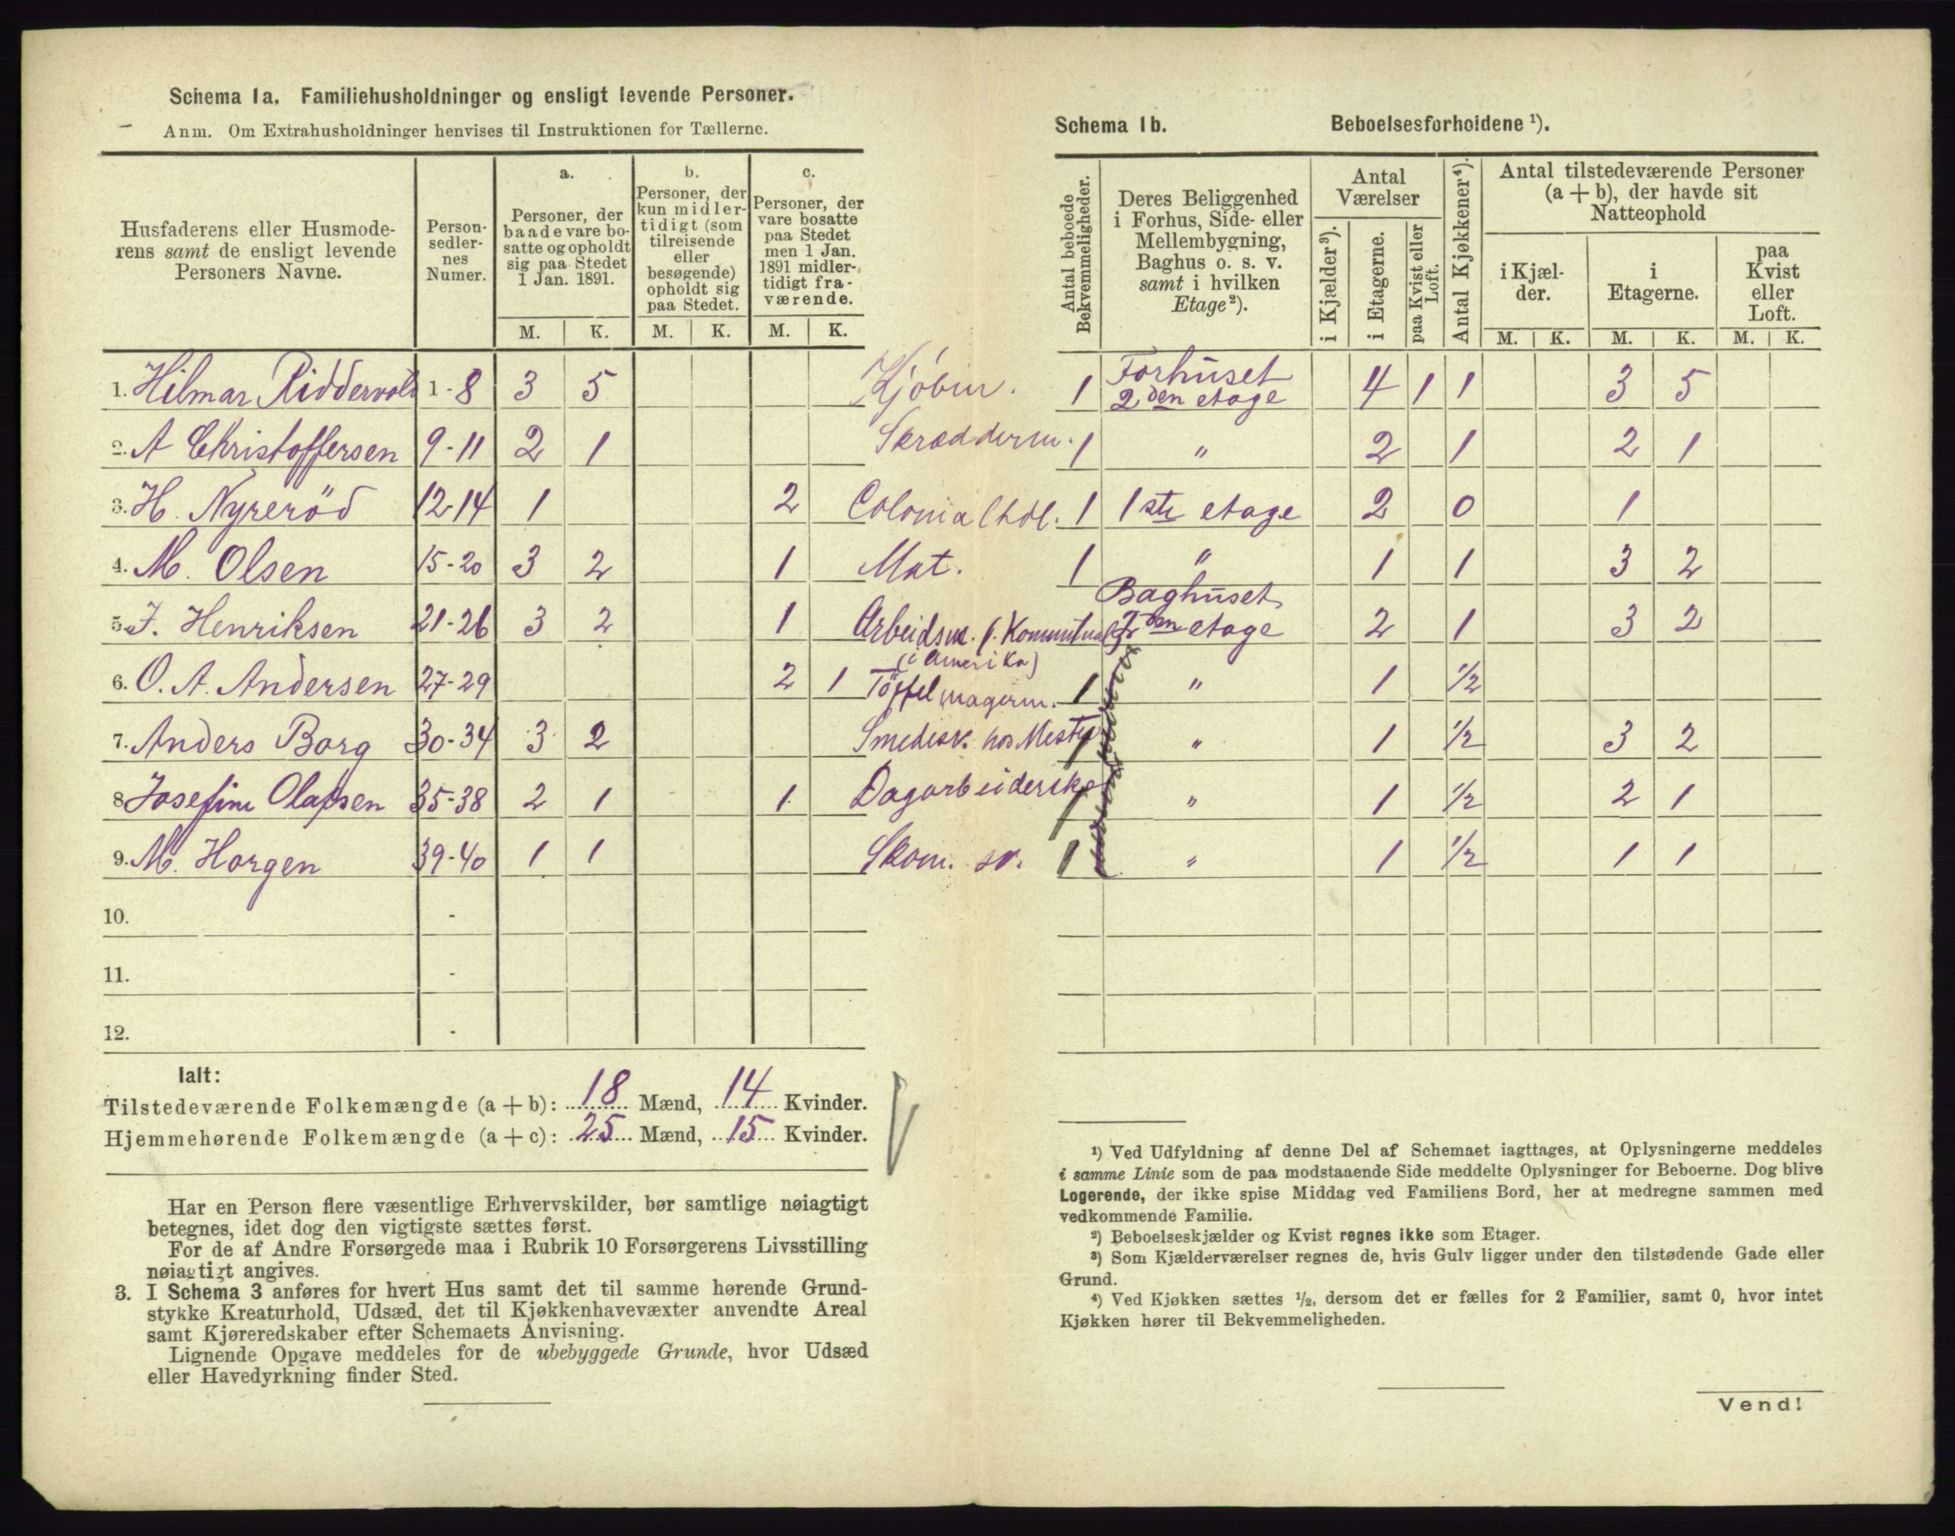 Schema 1a. Familiehusholdninger og ensligt levende Personer.
Anm. Om Extrahusholdninger henvises til Instruktionen for Tællerne.
Husfaderens eller Husmoderens samt de ensligt levende Personers Navne.
Personsedlernes Numer.
a. Personer, der baade vare bosatte og opholdt sig paa Stedet 1 Jan. 1891.
b. Personer, der kun midlertidigt (som tilreisende eller besøgende) opholdt sig paa Stedet.
c. Personer, der vare bosatte paa Stedet men 1 Jan. 1891 midlertidigt fraværende.
M. K. M. K. M. K.
1. Hilmar Riddervold 1-8 3 5 Kjøbm.
2. A Christoffersen 9-11 2 1 Skrædderm.
3. H. Nyrerød 12-14 1 2 Colonialhdl.
4. M. Olsen 15-20 3 2 1 Mat.
5. J. Henriksen 21-26 3 2 1 Arbeidsm. f. Kommunal
6. O. A. Andersen 27-29 2 1 (i Amerika) Töffelmagerm.
7. Anders Borg 30-34 3 2 Smedesk. hos Mester
8. Josefine Olafsen 35-38 2 1 1 Dagarbeiderske
9. M. Horgen 39-40 1 1 Skom. sv.
10. -
11. -
12. -
Ialt:
Tilstedeværende Folkemængde (a+b): 18 Mænd, 14 Kvinder.
Hjemmehørende Folkemængde (a+c): 25 Mænd, 15 Kvinder.
Har en Person flere væsentlige Erhvervskilder, bør samtlige nøiagtigt
betegnes, idet dog den vigtigste sættes først.
For de af Andre Forsørgede maa i Rubrik 10 Forsørgerens Livsstilling
nøiagtigt angives.
3. I Schema 3 anføres for hvert Hus samt det til samme hørende Grund-
stykke Kreaturhold, Udsæd, det til Kjøkkenhavevæxter anvendte Areal
samt Kjøreredskaber efter Schemaets Anvisning.
Lignende Opgave meddeles for de ubebyggede Grunde, hvor Udsæd
eller Havedyrkning finder Sted.
Schema 1b. Beboelsesforholdene ¹).
Antal beboede Bekvemmeligheder.
Deres Beliggenhed i Forhus, Side- eller Mellembygning, Baghus o. s. v. samt i hvilken Etage²).
Antal Værelser
i Kjælder³). i Etagerne. paa Kvist eller Loft.
Antal Kjøkkener⁴).
Antal tilstedeværende Personer (a+b), der havde sit Natteophold
i Kjælder. i Etagerne. paa Kvist eller Loft.
M. K. M. K. M. K.
1 Forhuset 2den etage 4 1 1 3 5
1 " 2 1 2 1
1 1ste etage 2 0 1
1 " 1 1 3 2
Baghuset 2den etage 2 1 3 2
1 " 1 ½
1 " 1 ½ 3 2
1 " 1 ½ 2 1
1 " 1 ½ 1 1
¹) Ved Udfyldning af denne Del af Schemaet iagttages, at Oplysningerne meddeles
i samme Linie som de paa modstaaende Side meddelte Oplysninger for Beboerne. Dog blive
Logerende, der ikke spise Middag ved Familiens Bord, her at medregne sammen med
vedkommende Familie.
²) Beboelseskjælder og Kvist regnes ikke som Etager.
³) Som Kjælderværelser regnes de, hvis Gulv ligger under den tilstødende Gade eller
Grund.
⁴) Ved Kjøkken sættes ½, dersom det er fælles for 2 Familier, samt 0, hvor intet
Kjøkken hører til Bekvemmeligheden.
Vend!